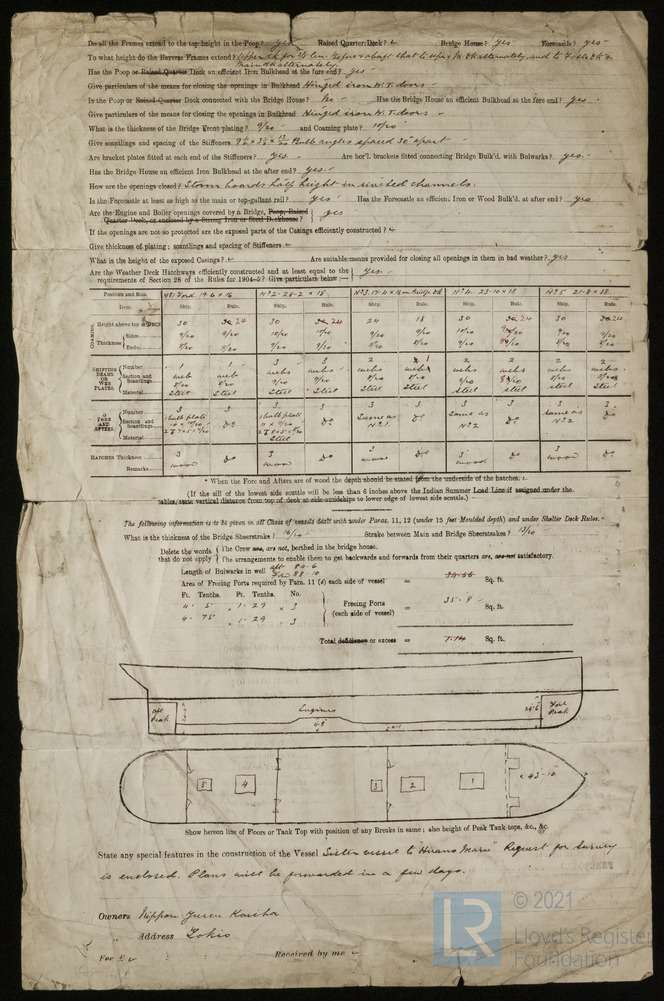 Do all the Frames extend to the top height in the Poop? yes Raised Quarter Deck? Bridge House? yes Forecastle? yes
To what height do the Reverse Frames extend?
Main dk alternately
Has the Poop or Raised Quarter Deck an efficient Iron Bulkhead at the fore end? yes
Give particulars of the means for closing the openings in Bulkhead Hinged iron W.T. doors
Is the Poop or Raised Quarter Deck connected with the Bridge House? No Has the Bridge House an efficient Bulkhead at the fore end? yes
Give particulars of the means for closing the openings in Bulkhead Hinged iron W.T. doors
What is the thickness of the Bridge Front plating? 9/20 and Coaming plate? 10/20
Give scantlings and spacing of the Stiffeners Bulb angles spaced 30" apart
Are bracket plates fitted at each end of the Stiffeners? yes Are hor'l. brackets fitted connecting Bridge Bulk'd. with Bulwarks? yes
Has the Bridge House an efficient Iron Bulkhead at the after end? yes
How are the openings closed? Storm boards half height in riveted channels.
Is the Forecastle at least as high as the main or top-gallant rail? yes Has the Forecastle an efficient Iron or Wood Bulk'd. at after end? yes
Are the Engine and Boiler openings covered by a Bridge, Poop, Raised Quarter Deck, or enclosed by a Strong Iron or Steel Deckhouse? yes
If the openings are not so protected are the exposed parts of the Casings efficiently constructed?
Give thickness of plating; scantlings and spacing of Stiffeners
What is the height of the exposed Casings? Are suitable means provided for closing all openings in them in bad weather? yes
Are the Weather Deck Hatchways efficiently constructed and at least equal to the requirements of Section 28 of the Rules for 1904-5? Give particulars below:— yes.
Position and Size. No 1 Ford 19-6 x 16 No 2 - 28-2 x 18 No 3. 17-4 x 16 on Bridge Dk No 4. 23-10 x 18 No 5 21-8 x 18
Item. Ship. Rule. Ship. Rule. Ship. Rule. Ship. Rule. Ship. Rule.
COAMING.
Height above top of DECK 30 30 24 30 30 24 24 18 30 30 24 30 30 24
Thickness Sides
Ends
SHIFTING BEAMS OR WEB PLATES.
Number
Section and Scantlings
Material Steel Steel Steel Steel Steel Steel Steel Steel Steel Steel
* FORE AND AFTERS.
Number 3 3 3 3 3 3 3 3 3 3
Section and Scantlings 1 bulb plate Do 1 bulb plate Do Same as No 1. Do Same as No 2 Do Same as No 2 Do
Material Steel
HATCHES Thickness 3 Do 3 Do 3 Do 3 Do 3 Do
Remarks wood wood wood wood wood
* When the Fore and Afters are of wood the depth should be stated from the underside of the hatches.
(If the sill of the lowest side scuttle will be less than 6 inches above the Indian Summer Load Line if assigned under the tables, state vertical distance from top of deck at side amidships to lower edge of lowest side scuttle.)
The following information is to be given in all Class of vessels dealt with under Paras. 11, 12 (under 15 feet Moulded depth) and under Shelter Deck Rules.
What is the thickness of the Bridge Sheerstrake? 16/20 Strake between Main and Bridge Sheerstrakes? 12/20
Delete the words that do not apply
The Crew are, are not, berthed in the bridge house.
The arrangements to enable them to get backwards and forwards from their quarters are, are not satisfactory.
Length of Bulwarks in well aft 84-6
Ford 88-10
Area of Freeing Ports required by Para. 11 (d) each side of vessel = Sq. ft.
Ft. Tenths. Ft. Tenths. No.
4 - 5 x 1 - 29 x 3
4 - 75 x 1 - 29 x 3
Freeing Ports (each side of vessel) = 35-8 Sq. ft.
Total deficiency or excess = Sq. ft.
Aft Peak
Engines
4-8
24-6
Fore Peak
5
4
3
2
1
43'-10"
Show hereon line of Floors or Tank Top with position of any Breaks in same; also height of Peak Tank tops, &c., &c.
State any special features in the construction of the Vessel Sister vessel to "Hirano Maru" Request for survey
is enclosed. Plans will be forwarded in a few days.
Owners Nippon Yusen Kaisha
Address Tokio
Fee £
Received by me
LR
© 2021
Lloyd's Register
Foundation